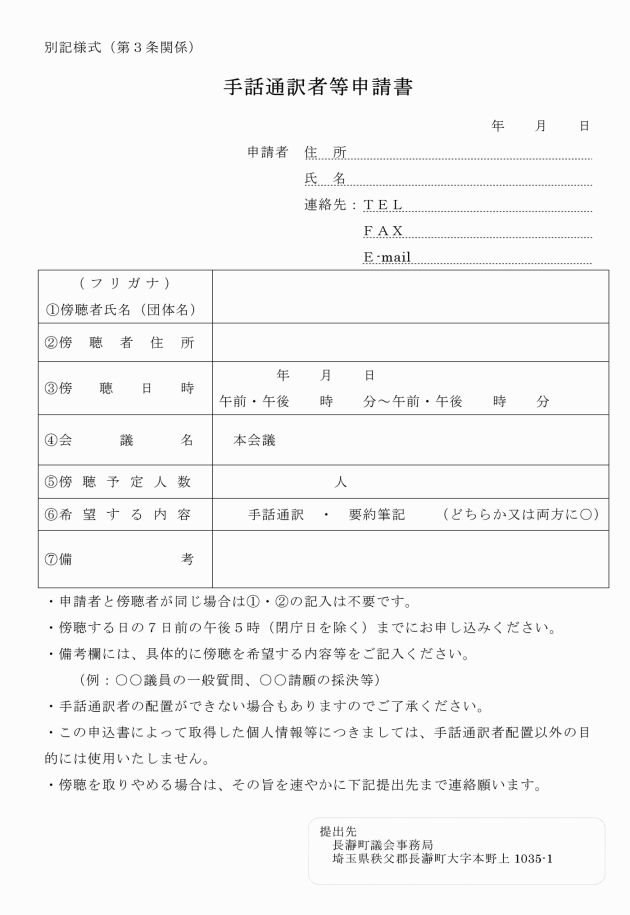 別記様式（第３条関係）
手話通訳者等申請書
年　　月　　日
申請者　住　所
氏　名
連絡先：ＴＥＬ
ＦＡＸ
Ｅ-mail
（フリガナ）
①傍聴者氏名（団体名）
②傍聴者住所
③傍聴日時
年　　月　　日
午前・午後　　時　　分～午前・午後　　時　　分
④会議名　本会議
⑤傍聴予定人数　人
⑥希望する内容　手話通訳　・　要約筆記　（どちらか又は両方に○）
⑦備考
・申請者と傍聴者が同じ場合は①・②の記入は不要です。
・傍聴する日の７日前の午後５時（閉庁日を除く）までにお申し込みください。
・備考欄には、具体的に傍聴を希望する内容等をご記入ください。
（例：○○議員の一般質問、○○請願の採決等）
・手話通訳者の配置ができない場合もありますのでご了承ください。
・この申込書によって取得した個人情報等につきましては、手話通訳者配置以外の目
的には使用いたしません。
・傍聴を取りやめる場合は、その旨を速やかに下記提出先まで連絡願います。
提出先
長瀞町議会事務局
埼玉県秩父郡長瀞町大字本野上 1035-1